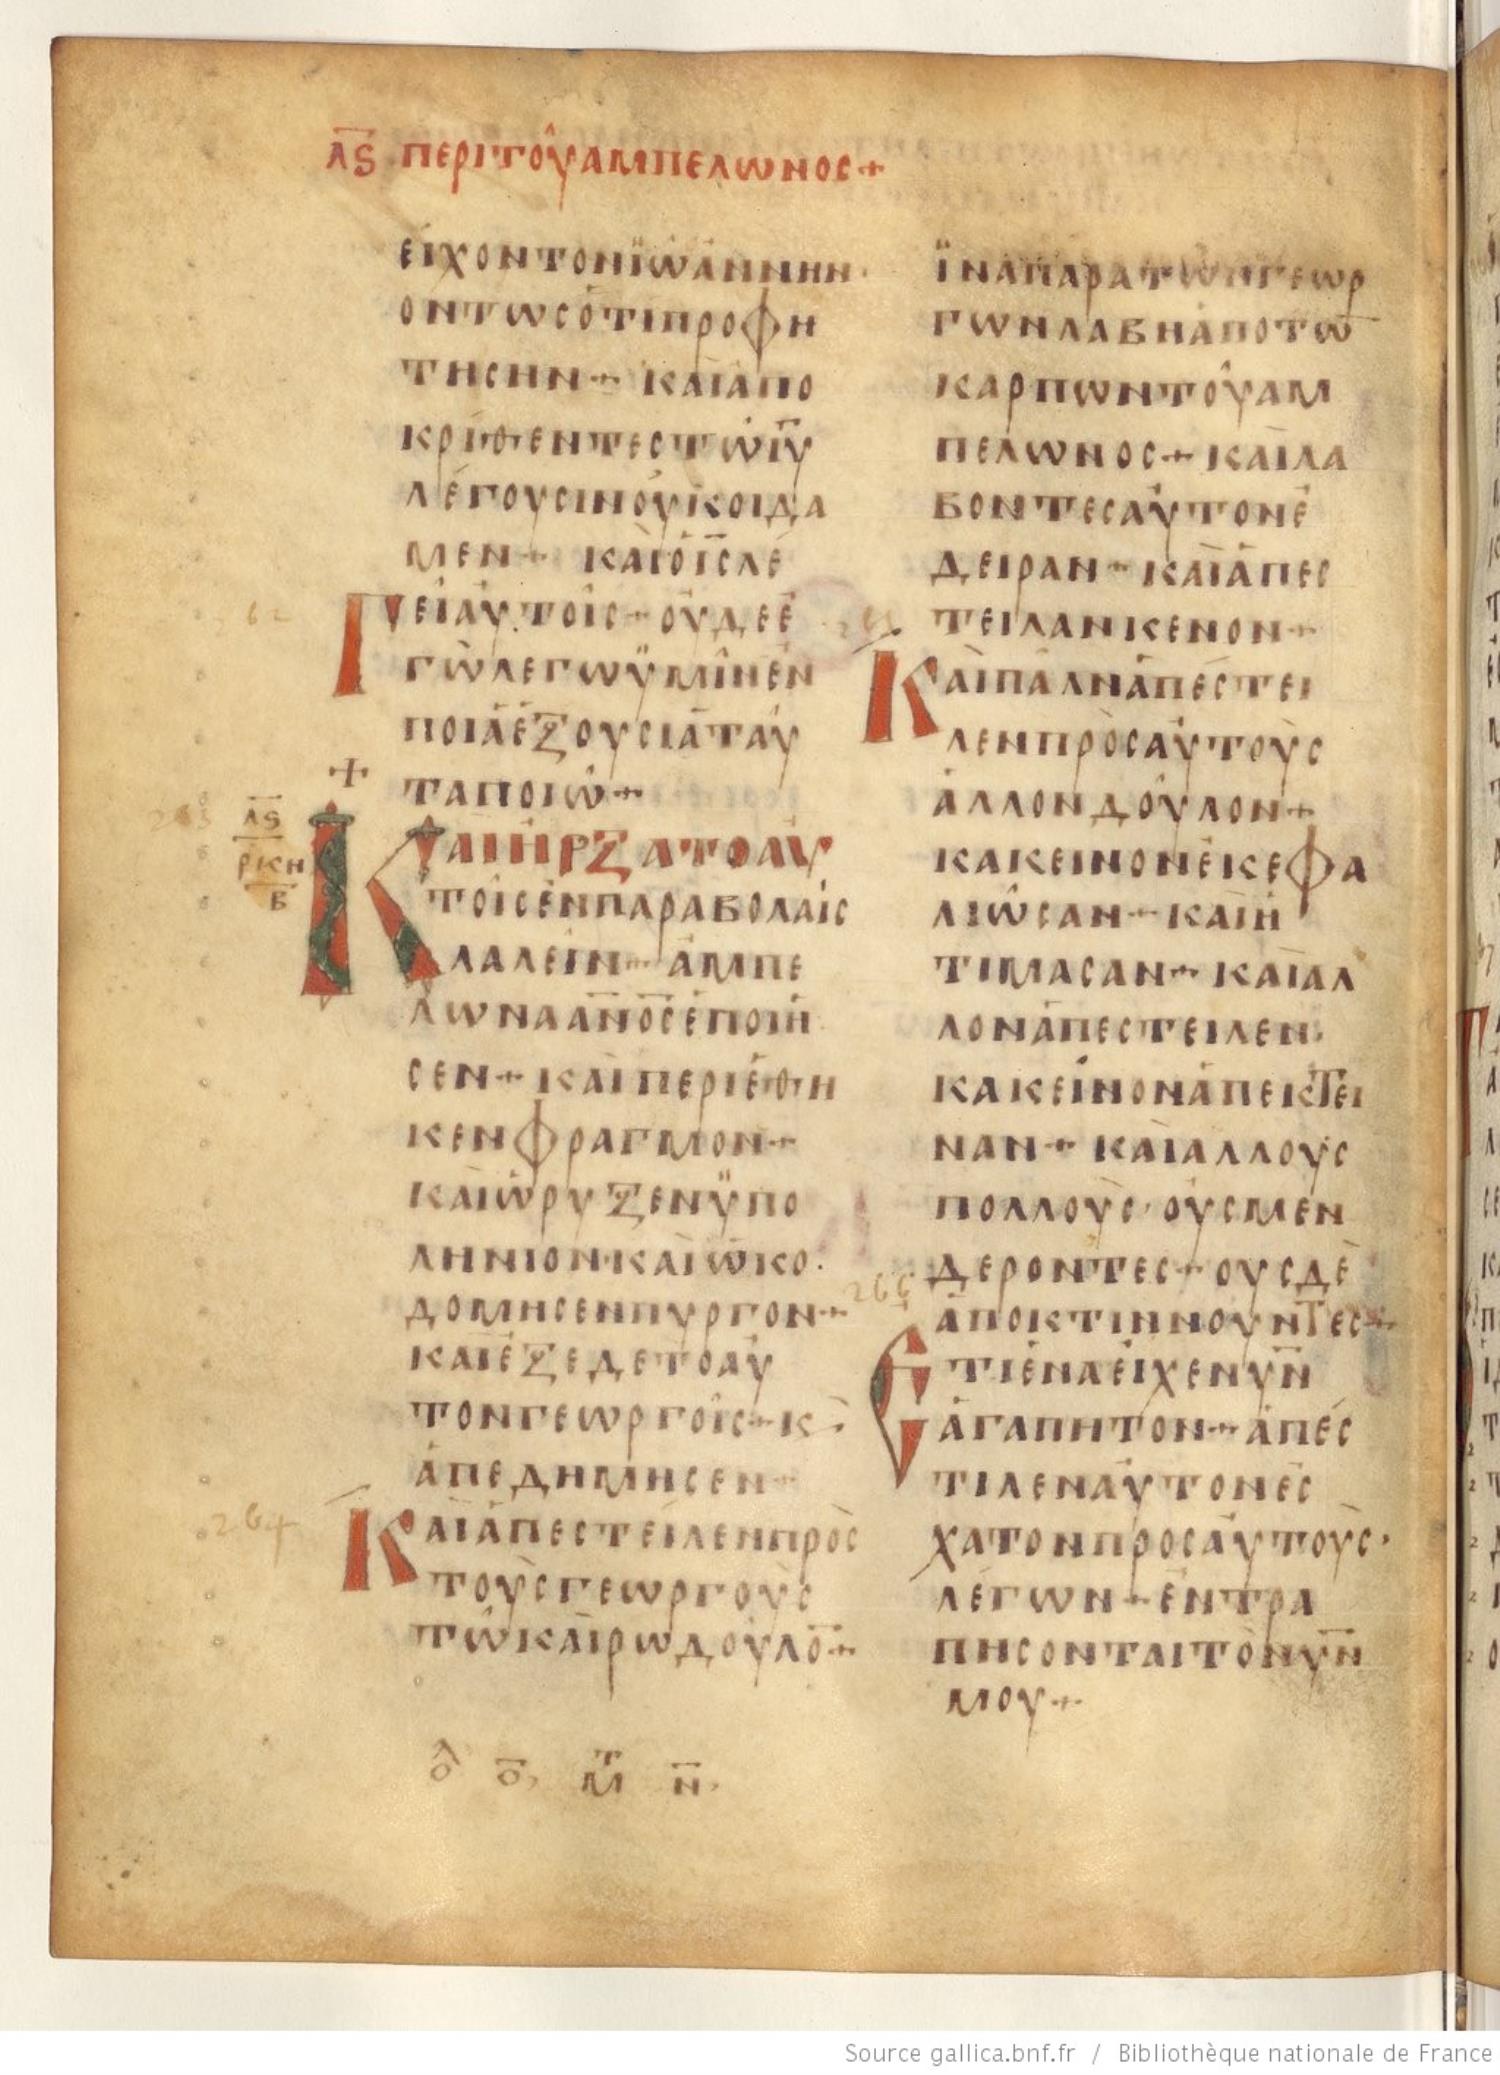 λϛ περιτουαμπελωνος+
ειχοντονϊωαννην·
οντωςοτιπροφη
τηςην+ καιαπο
κριθεντεςτωιυ
λεγουςινουκοιδα
μεν+ καιοιςλε
262 γειαυτοις+ουδεε
γωλεγωϋμινεν
ποιαεξουςιαταυ
ταποιω+
+
263 λϛ ρκη β καιηρξατοαυ
τοιςενπαραβολαις
λαλειν+αμπε
λωναανοςεποιη
ςεν+καιπεριεθη
κενφραγμον+
καιωρυξενϋπο
ληνιον·καιωκο·
δομηςενπυργον+
καιεξεδετοαυ
τονγεωργοις+κ
απεδημηςεν+
264 καιαπεςτειλενπρος
τουςγεωργους
τωκαιρωδουλο+
ϊναπαρατωνγεωρ
γωνλαβηαποτω
καρπωντουαμ
πελωνος+καιλα
βοντεςαυτονε
δειραν+καιαπες
τειλανκενον+
καιπαλιναπεςτει
λενπροςαυτους
αλλονδουλον+
κακεινονεκεφα
λιωςαν+καιη
τιμαςαν+καιαλ
λοναπεςτειλεν·
κακεινοναπεκτει
ναν+καιαλλους
πολλους·ουςμεν
δεροντες+ουςδε
αποκτιννουντες+
ετιεναειχενυν
αγαπητον+απες
τιλεναυτονες
χατονπροςαυτους·
λεγων+εντρα
πηςονταιτονυν
μου+
Source gallica.bnf.fr / Bibliothèque nationale de France